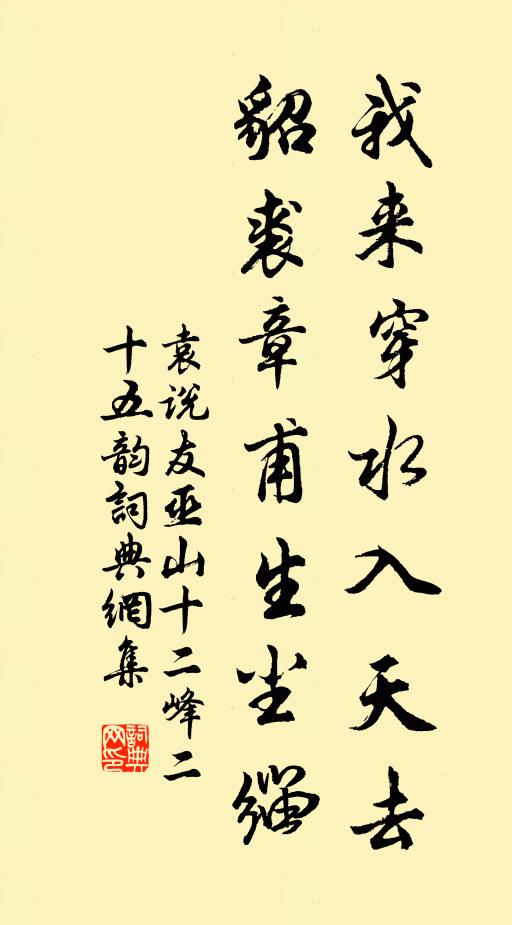 我来穿水入天去
貂裘章甫生尘缁
袁说友巫山十二峰二
十五韵詞典網集
詞典
网印